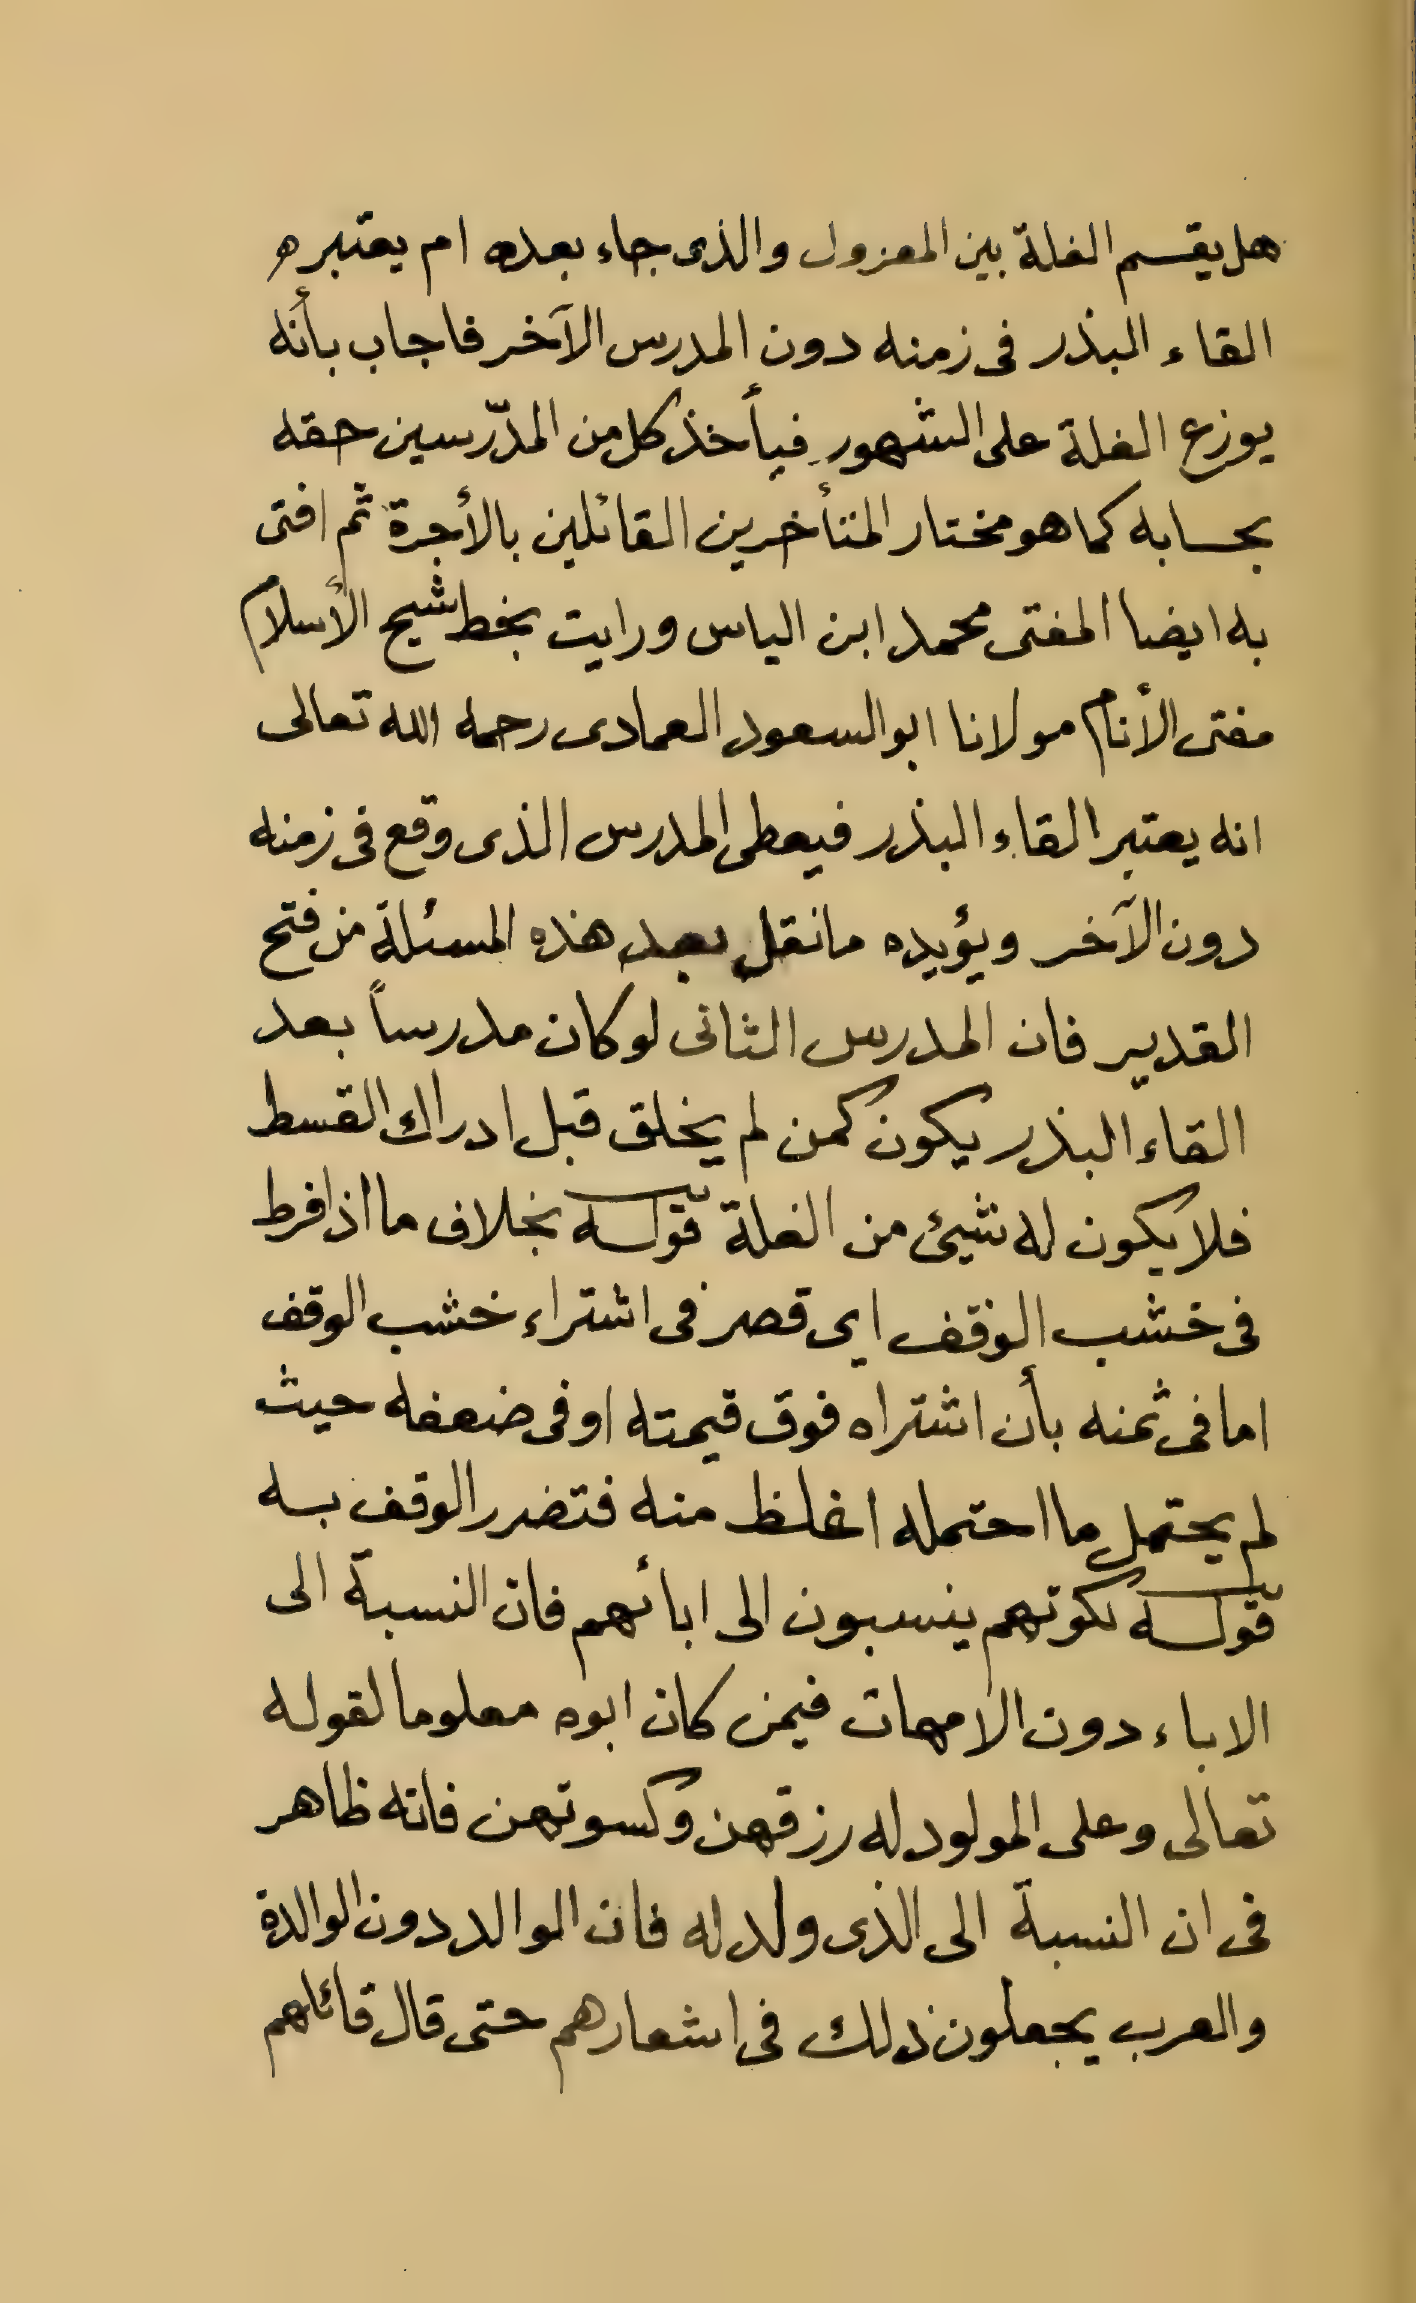 هل يقسم الغلة بين المعزول والذى جاء بعده ام يعتبر ه
القاء البذر فى زمنه دون المدرس الآخر فاجاب بأنه
يوزع الغلة على الشهور فيأخذ كل من المدّرسين حقه
بحسابه كما هو مختار المتأخرين القائلين بالأجرة ثم افتى
به ايضا المفتى محمد ابن الياس ورايت بخط شيح الأسلام
مفتى الأنام مولانا ابو السعود العمادى رحمه الله تعالى
انه يعتبر القاء البذر فيعطى المدرس الذى وقع فى زمنه
دون الآخر ويؤيده ما نقل بعد هذه المسئلة من فتح
القدير فان المدرس الثانى لو كان مدرساً بعد
القاء البذر يكون كمن لم يخلق قبل ادراك القسط
فلا يكون له شيئ من الغلة قوله بخلاف ما اذا فرط
فى خشب الوقف اى قصر فى اشتراء خشب الوقف
اما فى ثمنه بأن اشتراه فوق قيمته او فى ضعفه حيث
لم يحتمل ما احتمله اغلظ منه فتضرر الوقف به
قوله لكونهم ينسبون الى ابائهم فان النسبة الى
الاباء دون الامهات فيمن كان ابوه معلوما لقوله
تعالى وعلى المولود له رزقهن وكسوتهن فانه ظاهر
فى ان النسبة الى الذى ولد له فان الموالد دون الوالدة
والعرب يجعلون ذلك فى اشعارهم حتى قال قائلهم